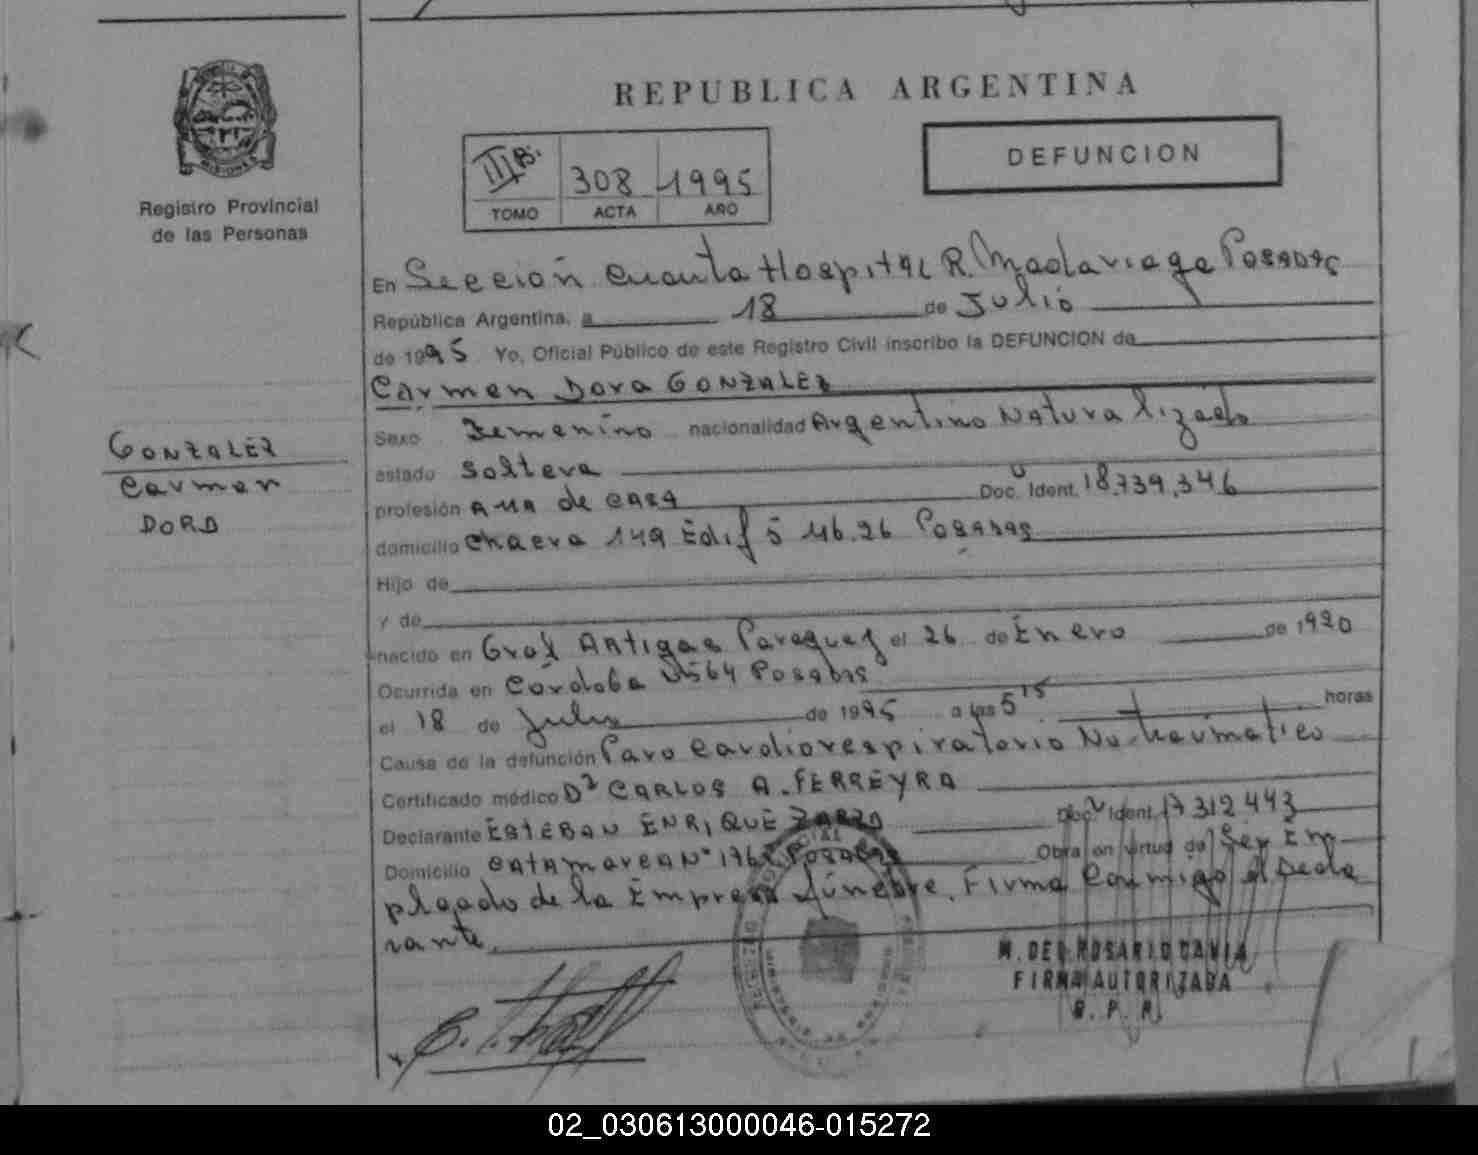 REPUBLICA ARGENTINA
DEFUNCION
III B.
308
1995
TOMO
ACTA
AÑO
MISIONES
Registro Provincial
de las Personas
GONZALEZ
Carmen
DORA
En Sección Cuarta Hospital R. Madariaga Posadas
República Argentina, a 18 de Julio
de 1995 Yo, Oficial Público de este Registro Civil inscribo la DEFUNCION de
Carmen Dora GONZALEZ
Sexo Femenino nacionalidad Argentino Naturalizado
estado Soltera
profesión AMA de CASA Doc. Ident. 18.739.346
domicilio Chacra 149 Edif 5 Posadas
Hijo de
y de
nacido en Gral Artigas Paraguay el 26 de Enero de 1920
Ocurrida en Córdoba 564 Posadas
el 18 de Julio de 1995 a las 5 15 horas
Causa de la defunción Paro Cardiorespiratorio No traumatico
Certificado médico Dr CARLOS A. FERREYRA
Declarante ESTEBAN ENRIQUE Doc. Ident. 17 312 443
Domicilio CATAMARCA Nº Posadas Obra en virtud de Ser Em
pleado de la Empresa fúnebre. Firma Conmigo el Decla
rante.
M. DEL ROSARIO
FIRMA AUTORIZADA
R. P. P.
02_030613000046-015272